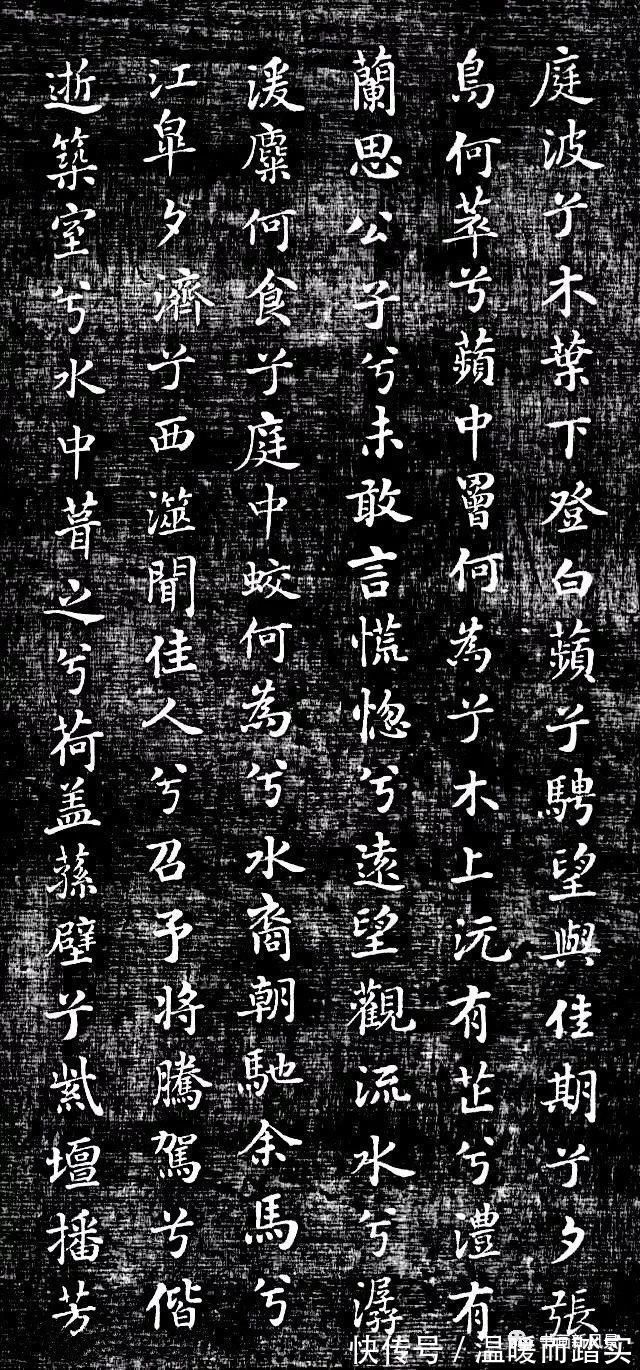 庭波兮木葉下登白蘋兮騁望與佳期兮夕張
鳥何萃兮蘋中罾何為兮木上沅有芷兮澧有
蘭思公子兮未敢言慌惚兮遠望觀流水兮潺
湲麋何食兮庭中蛟何為兮水裔朝馳余馬兮
江皐夕濟兮西澨聞佳人兮召予將騰駕兮偕
逝築室兮水中葺之兮荷盖蓀壁兮紫壇播芳
快传号 / 温暖而踏实